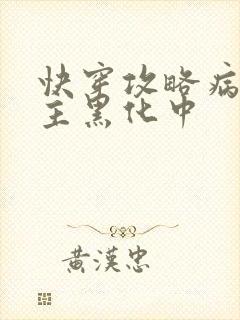 快穿攻略病
主黑化中
黄汉忠